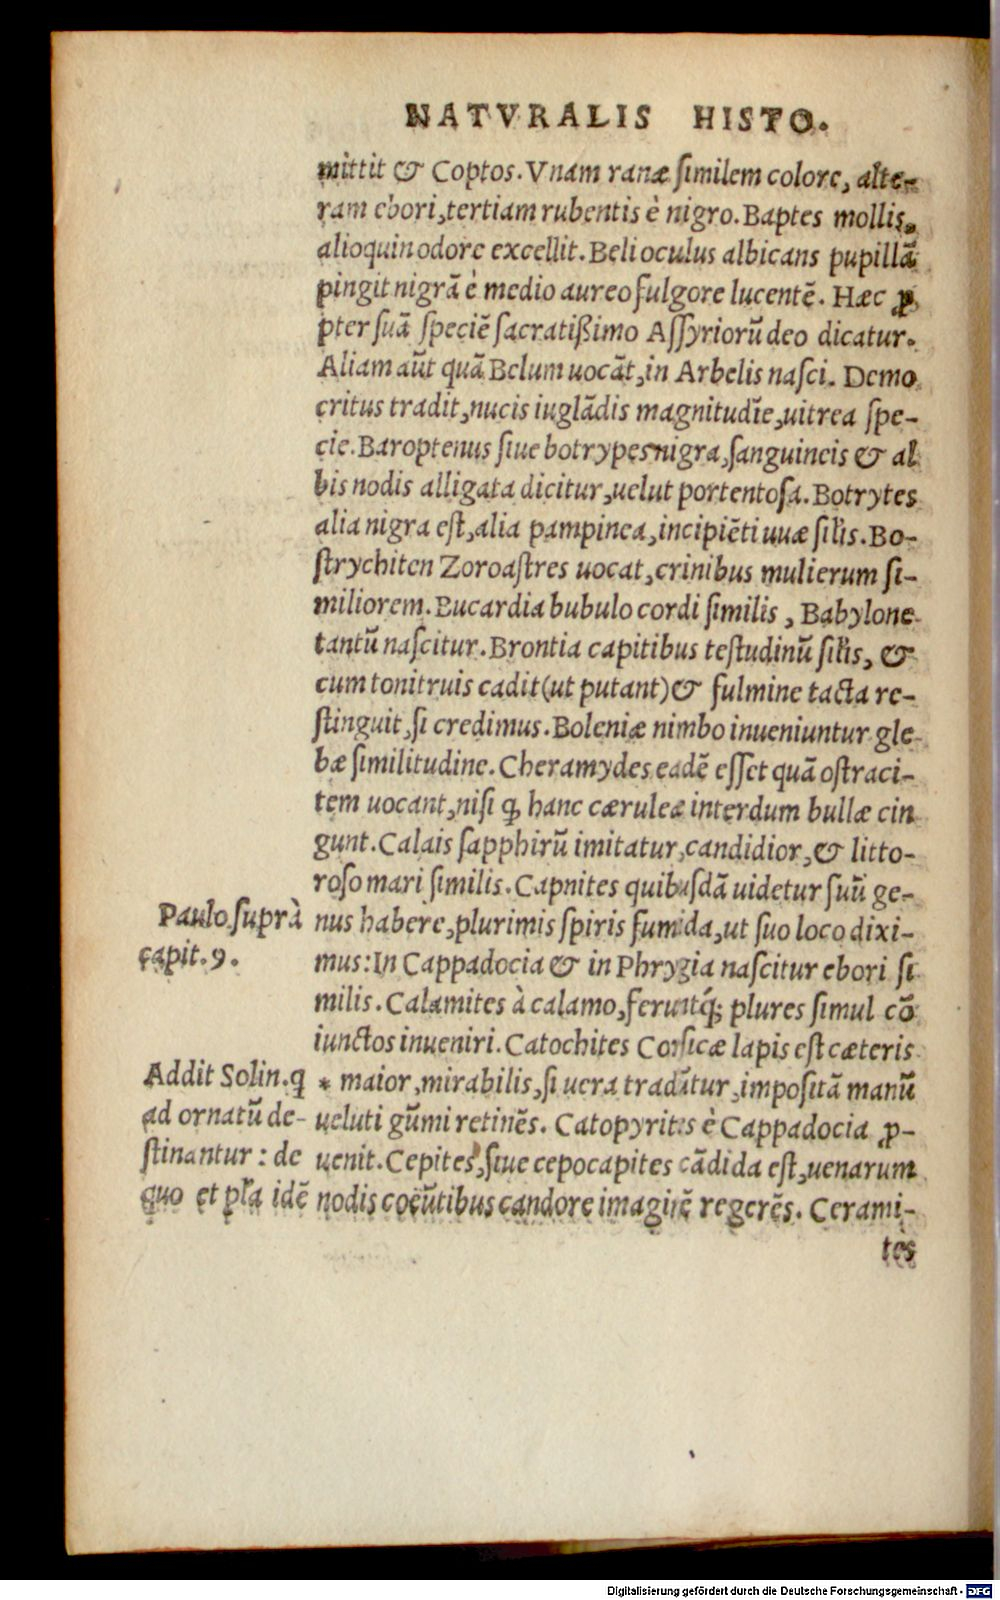 NATVRALIS HISTO.
mittit & Coptos. Vnam ranæ similem colore, alte-
ram ebori, tertiam rubentis è nigro. Baptes mollis,
alioquin odore excellit. Beli oculus albicans pupillã
pingit nigrã è medio aureo fulgore lucentẽ. Hæc ꝓ
pter suã speciẽ sacratißimo Assyriorũ deo dicatur.
Aliam aũt quã Belum uocãt, in Arbelis nasci. Demo
critus tradit, nucis iuglãdis magnitudĩe, uitrea spe-
cie. Baroptenus siue botrypes nigra, sanguineis & al
bis nodis alligata dicitur, uelut portentosa. Botrytes
alia nigra est, alia pampinea, incipiẽti uuæ sil̃is. Bo-
strychiten Zoroastres uocat, crinibus mulierum si-
miliorem. Eucardia bubulo cordi similis, Babylone
tantũ nascitur. Brontia capitibus testudinũ sil̃is, &
cum tonitruis cadit (ut putant) & fulmine tacta re-
stinguit, si credimus. Boleniæ nimbo inueniuntur gle
bæ similitudine. Cheramydes eadẽ esset quã ostraci-
tem uocant, nisi ꝙ hanc cæruleæ interdum bullæ cin
gunt. Calais sapphirũ imitatur, candidior, & litto-
roso mari similis. Capnites quibusdã uidetur suũ ge-
Paulo suprà
capit. 9.
nus habere, plurimis spiris fumida, ut suo loco dixi-
mus: In Cappadocia & in Phrygia nascitur ebori si
milis. Calamites à calamo, feruntq́; plures simul cõ
iunctos inueniri. Catochites Corsicæ lapis est cæteris
Addit Solin. q
ad ornatũ de-
stinantur: de
quo et pl̃a idẽ
* maior, mirabilis, si uera tradũtur, impositã manũ
ueluti gũmi retinẽs. Catopyrites è Cappadocia ꝓ-
uenit. Cepites, siue cepocapites cãdida est, uenarum
nodis coẽũtibus candore imaginẽ regerẽs. Cerami-
tes
Digitalisierung gefördert durch die Deutsche Forschungsgemeinschaft - DFG